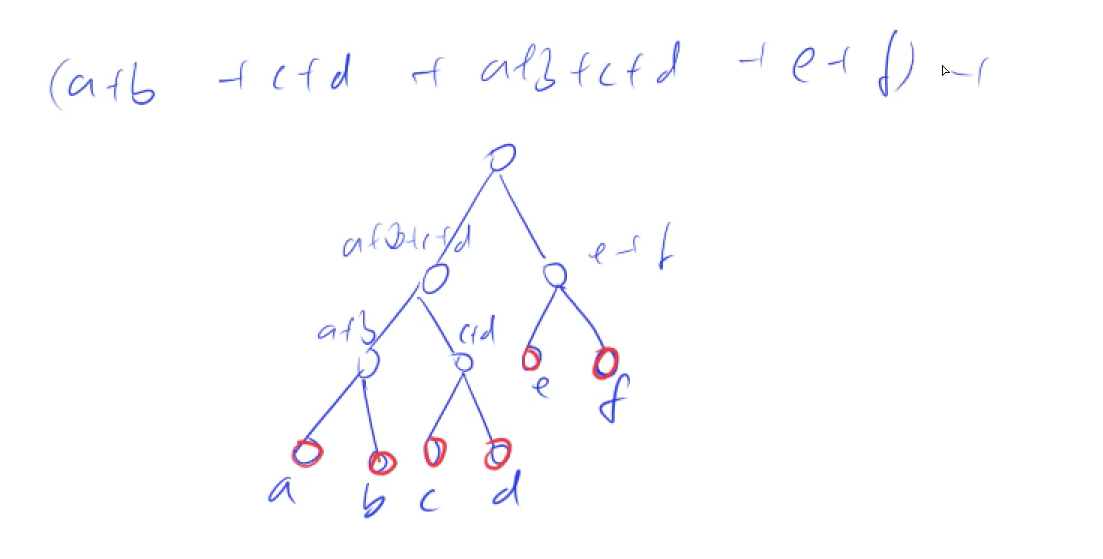 (a+b + c+d + a+b+c+d + e+f) +
a+b+c+d
e+f
a+b
c+d
e
f
a b c d